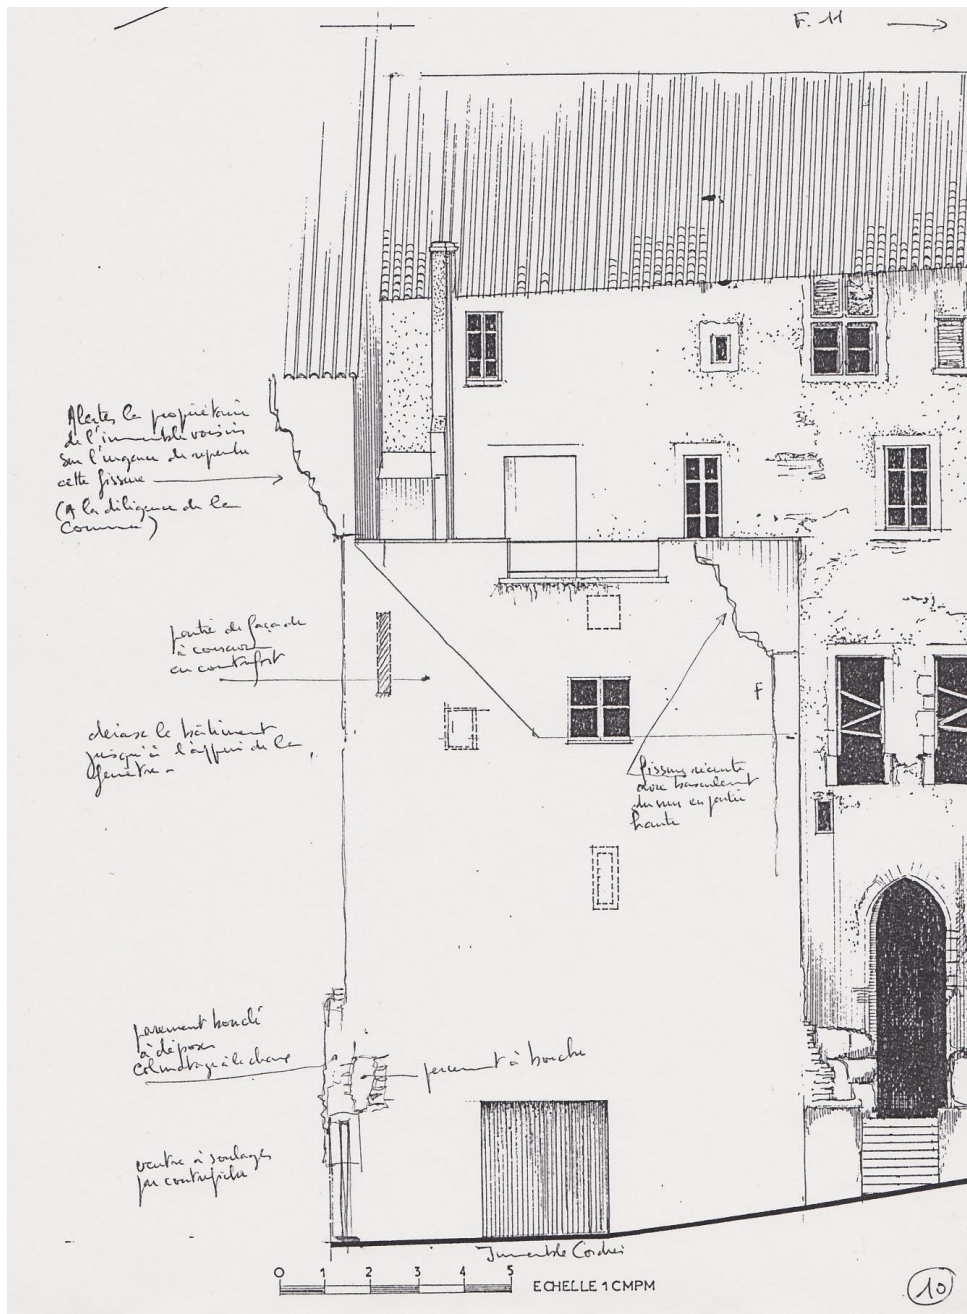 F. 11
Alerter le propriétaire
de l'immeuble voisin
sur l'urgence de reprendre
cette fissure
(à la diligence de la
Commune)
partie de façade
à conserver
en contrefort
déraser le bâtiment
jusqu'à l'appui de la
fenêtre -
F
fissure récente
avec basculement
du mur en partie
haute
parement bouclé
à déposer
colmatage à la chaux
percement à boucher
à soulager
par contrefiche
Immeuble
0 1 2 3 4 5
ECHELLE 1 CMPM
10